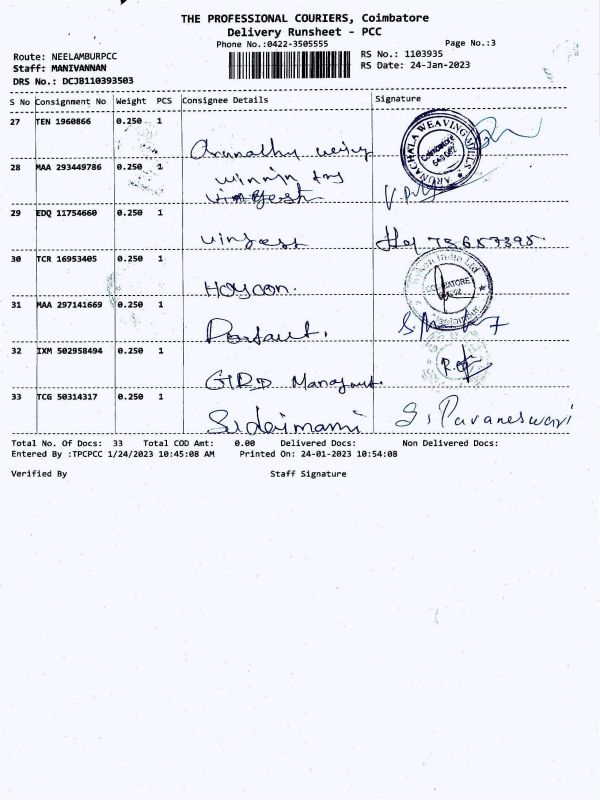 THE PROFESSIONAL COURIERS, Coimbatore
Delivery Runsheet - PCC
Phone No.:0422-3505555
Page No.:3
Route: NEELAMBURPCC
RS No.: 1103935
Staff: MANIVANNAN
RS Date: 24-Jan-2023
DRS No.: DCJB110393503
S No Consignment No Weight PCS Consignee Details Signature
27 TEN 1960866 0.250 1
ARUNACHALA WEAVING MILLS
Coimbatore
28 MAA 293449786 0.250 1
29 EDQ 11754660 0.250 1
30 TCR 16953405 0.250 1
Hoycon.
31 MAA 297141669 0.250 1
32 IXM 502958494 0.250 1
GIRD
33 TCG 50314317 0.250 1
S. Pavaneswari
Total No. Of Docs: 33 Total COD Amt: 0.00 Delivered Docs: Non Delivered Docs:
Entered By :TPCPCC 1/24/2023 10:45:08 AM Printed On: 24-01-2023 10:54:08
Verified By Staff Signature